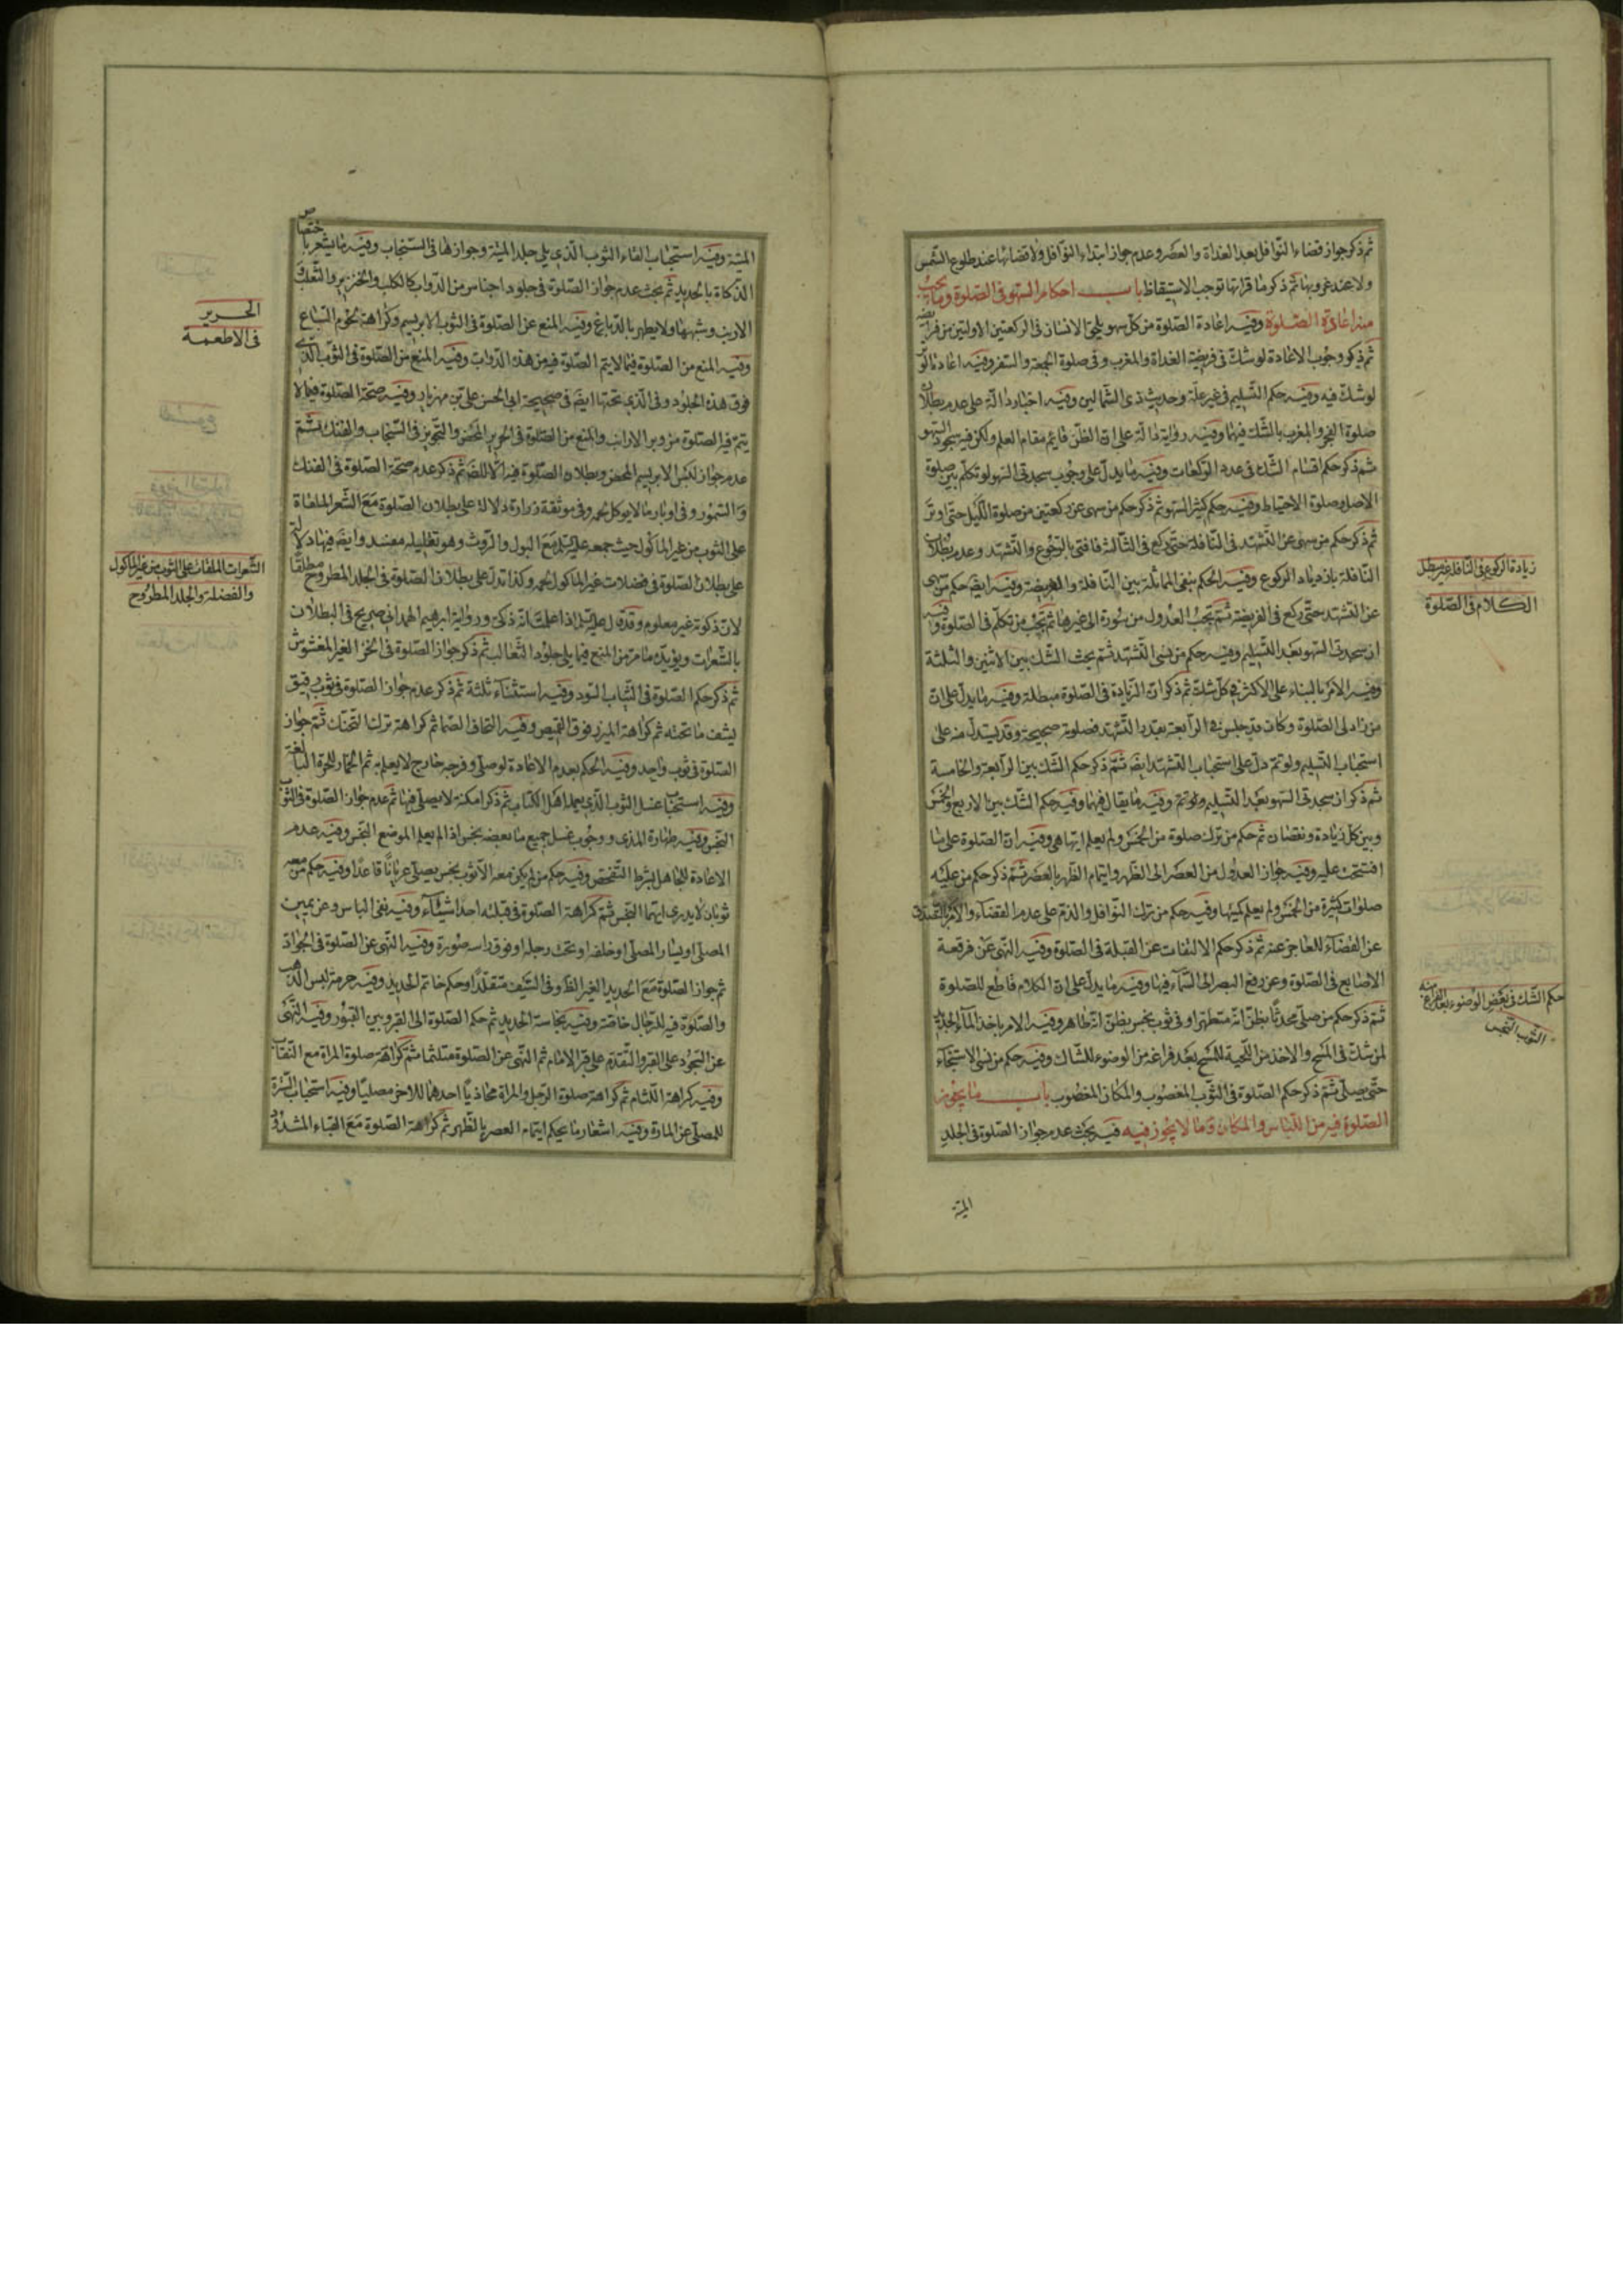 ثم ذكر جواز قضاء النوافل بعد الغداة والعصر وعدم جواز ابتداء النوافل ولا قضائها عند طلوع الشمس
ولا عند غروبها ثم ذكر ما قرائتها توجب الاستيقاظ باب احكام السهو فى الصلوة وما يجب
منه اعادة الصلوة وفيه اعادة الصلوة من كل سهو يلحق الانسان فى الركعتين الاولتين من فرايضه
ثم ذكر وجوب الاعادة لو شك فى فريضة الغداة والمغرب وفى صلوة الجمعة والسفر وفيه اعادة
لو شك فيه وفيه حكم التسليم فى غير محله وحديث ذى الشمالين وفيه اخبار دالة على عدم بطلان
صلوة الفجر والمغرب بالشك فيهما وفيه رواية دالة على ان الظن قايم مقام العلم ولكن فيه سجود السهو
ثم ذكر حكم اقسام الشك فى عدد الركعات وفيه ما يدل على وجوب سجدتى السهو لو تكلم بين صلوة
الاصل وصلوة الاحتياط وفيه حكم كثير السهو ثم ذكر حكم من سهى عن ركعتين من صلوة الليل حتى اوتر
ثم ذكر حكم من سهى عن التشهد فى النافلة حتى ركع فى الثالثة فافتى بالرجوع والتشهد وعدم بطلان
النافلة بازدياد الركوع وفيه الحكم بنفى المماثلة بين النافلة والفريضة وفيه ايضا حكم من سهى
عن التشهد حتى ركع فى الفريضة ثم بحث العدول من سورة الى غيرها ثم بحث من تكلم فى الصلوة وفيه
ان سجدتى السهو بعد التسليم وفيه حكم من نسى التشهد ثم بحث الشك بين الاثنين والثلثة
وفيه الامر بالبناء على الاكثر فى كل شك ثم ذكر ان الزيادة فى الصلوة مبطلة وفيه ما يدل على ان
من زاد فى الصلوة وكان قد جلس فى الرابعة بقدر التشهد فصلوته صحيحة وقد يستدل منه على
استحباب التسليم ولو تم دل على استحباب التشهد ايضا ثم ذكر حكم الشك بين الرابعة والخامسة
ثم ذكر ان سجدتى السهو بعد التسليم ولو تم وفيه ما يقال فيهما وفيه حكم الشك بين الاربع والخمس
وبين كل زيادة ونقصان ثم حكم من ترك صلوة من الخمس ولم يعلم ايتها هى وفيه ان الصلوة على ما
افتتحت عليه وفيه جواز العدول من العصر الى الظهر واتمام الظهر بالعصر ثم ذكر حكم من عليه
صلوات كثيرة من الخمس ولم يعلم كميتها وفيه حكم من ترك النوافل والذم على عدم القضاء والامر بالتصدق
عن القضاء للعاجز عنه ثم ذكر حكم الالتفات عن القبلة فى الصلوة وفيه النهى عن فرقعة
الاصابع فى الصلوة وعن رفع البصر الى السماء فيها وفيه ما يدل على ان الكلام قاطع للصلوة
ثم ذكر حكم من صلى محدثا بظن انه متطهر او فى ثوب نجس بظن انه طاهر وفيه الامر باخذ الماء الجديد
لمن شك فى المسح والاخذ من اللحية للمسح بعد فراغه من الوضوء للشاك وفيه حكم من نسى الاستنجاء
حتى يصلى ثم ذكر حكم الصلوة فى الثوب المغصوب والمكان المغصوب باب ما يجوز
الصلوة فيه من اللباس والمكان وما لا يجوز فيه فيه بحث عدم جواز الصلوة فى الجلد
الميتة
زيادة الركوع فى النافلة غير مبطل
الكلام فى الصلوة
حكم الشك فى بعض الوضوء بعد الفراغ منه
الثوب النجس
الميتة وفيه استحباب القاء الثوب الذى يلى جلد الميتة وجوازها فى السنجاب وفيه ما يشعر باختصاص
الذكاة بالحديد ثم بحث عدم جواز الصلوة فى جلود اجناس من الدواب كالكلب والخنزير والثعلب
الارنب وشبهها ولا يطهر بالدباغ وفيه المنع عن الصلوة فى الثوب الابريسم وكراهة لحوم السباع
وفيه المنع من الصلوة فيما لا يتم الصلوة فيه من هذه الدواب وفيه المنع من الصلوة فى الثوب الذى
فوق هذه الجلود وفى الذى تحتها ايضا فى صحيحة ابى الحسن على بن مهزيار وفيه صحة الصلوة فيما لا
يتم فيه الصلوة من وبر الارانب والمنع من الصلوة فى الحرير المحض والتجويز فى السنجاب والفنك ثم
عدم جواز لبس الابريسم المحض وبطلان الصلوة فيه ثم ذكر عدم صحة الصلوة فى الفنك
والسمور وفى اوبار ما لا يوكل لحمه وفى موثقة زرارة دلالة على بطلان الصلوة مع الشعر الملقاة
على الثوب من غير الماكول حيث جمعه عليه السلم مع البول والروث وهو تعليله مفسد وايضا فيها دلالة
على بطلان الصلوة فى فضلات غير الماكول لحمه وكذا تدل على بطلان الصلوة فى الجلد المطروح مطلقا
لان ذكوته غير معلوم وقد قال عليه السلم اذا علمت انه ذكى ورواية ابرهيم الهمدانى صريح فى البطلان
بالشعرات ويؤيده ما مر من المنع فيما يلى جلود الثعالب ثم ذكر جواز الصلوة فى الخز الغير المغشوش
ثم ذكر حكم الصلوة فى الثياب السود وفيه استثناء ثلثة ثم ذكر عدم جواز الصلوة فى ثوب رقيق
يشف ما تحته ثم كراهة الميزر فوق القميص وفيه التحاف الصما ثم كراهة ترك التحنك ثم جواز
الصلوة فى ثوب واحد وفيه الحكم بعدم الاعادة لو صلى وفرجه خارج لا يعلم به ثم الخمار للحرة البالغة
وفيه استحباب غسل الثوب الذى يعمله اهل الكتاب ثم ذكر امكنة لا يصلى فيها ثم عدم جواز الصلوة فى الثوب
النجس وفيه طهارة المذى ووجوب غسل جميع ما بعضه نجس اذا لم يعلم الموضع النجس وفيه عدم
الاعادة للجاهل بشرط التفحص وفيه حكم من لم يكن معه الا ثوب نجس يصلى عريانا قاعدا وفيه حكم من معه
ثوبان لا يدرى ايتهما النجس ثم كراهة الصلوة فى قبلته احد اشياء وفيه نفى الباس وعن يمين
المصلى او يسار المصلى او خلفه او تحت رجله او فوق راسه صورة وفيه النهى عن الصلوة فى الجواد
ثم جواز الصلوة مع الحديد الغير الظ وفى السيف متقلدا وحكم خاتم الحديد وفيه حرمة لبس الذهب
والصلوة فيه للرجال خاصة وفيه نجاسة الحديد ثم حكم الصلوة الى القبر وبين القبور وفيه النهى
عن السجود على القبر والتقدم على قبر الامام ثم النهى عن الصلوة متلثما ثم كراهة صلوة المراة مع النقاب
وفيه كراهة اللثام ثم كراهة صلوة الرجل والمراة محاذيا احدهما للاخر مصليا وفيه استحباب السترة
للمصلى عن المارة وفيه اشعار ما بحكم ايتمام العصر بالظهر ثم كراهة الصلوة مع القباء المشدود
الحرير
فى الاطعمة
الشعرات الملقات على الثوب من غير الماكول
والفضلة والجلد المطروح